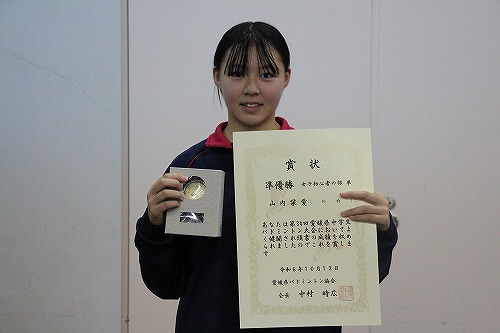 賞状
準優勝 女子初心者の部 単
山内 葉愛
あなたは第34回愛媛県中学生
バドミントン大会において よ
く健闘され頭書の成績を収め
られましたのでこれを賞しま
す
令和6年10月12日
愛媛県バドミントン協会
会長 中村 時広